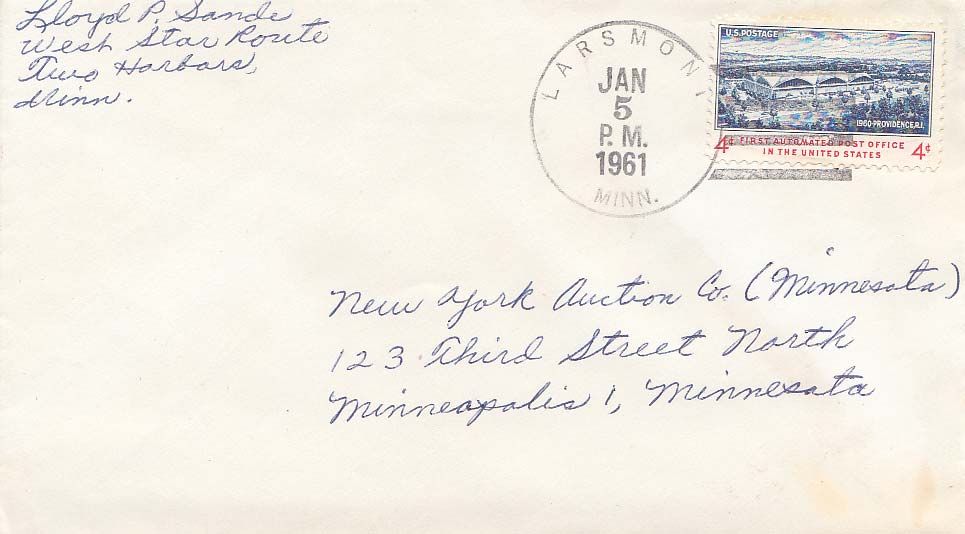 Lloyd P. Sande
West Star Route
Two Harbors,
Minn.
LARSMONT
JAN
5
P.M.
1961
MINN.
U.S. POSTAGE
1960·PROVIDENCE, R.I.
4¢ FIRST AUTOMATED POST OFFICE 4¢
IN THE UNITED STATES
New York Auction Co. (Minnesota)
123 Third Street North
Minneapolis 1, Minnesota